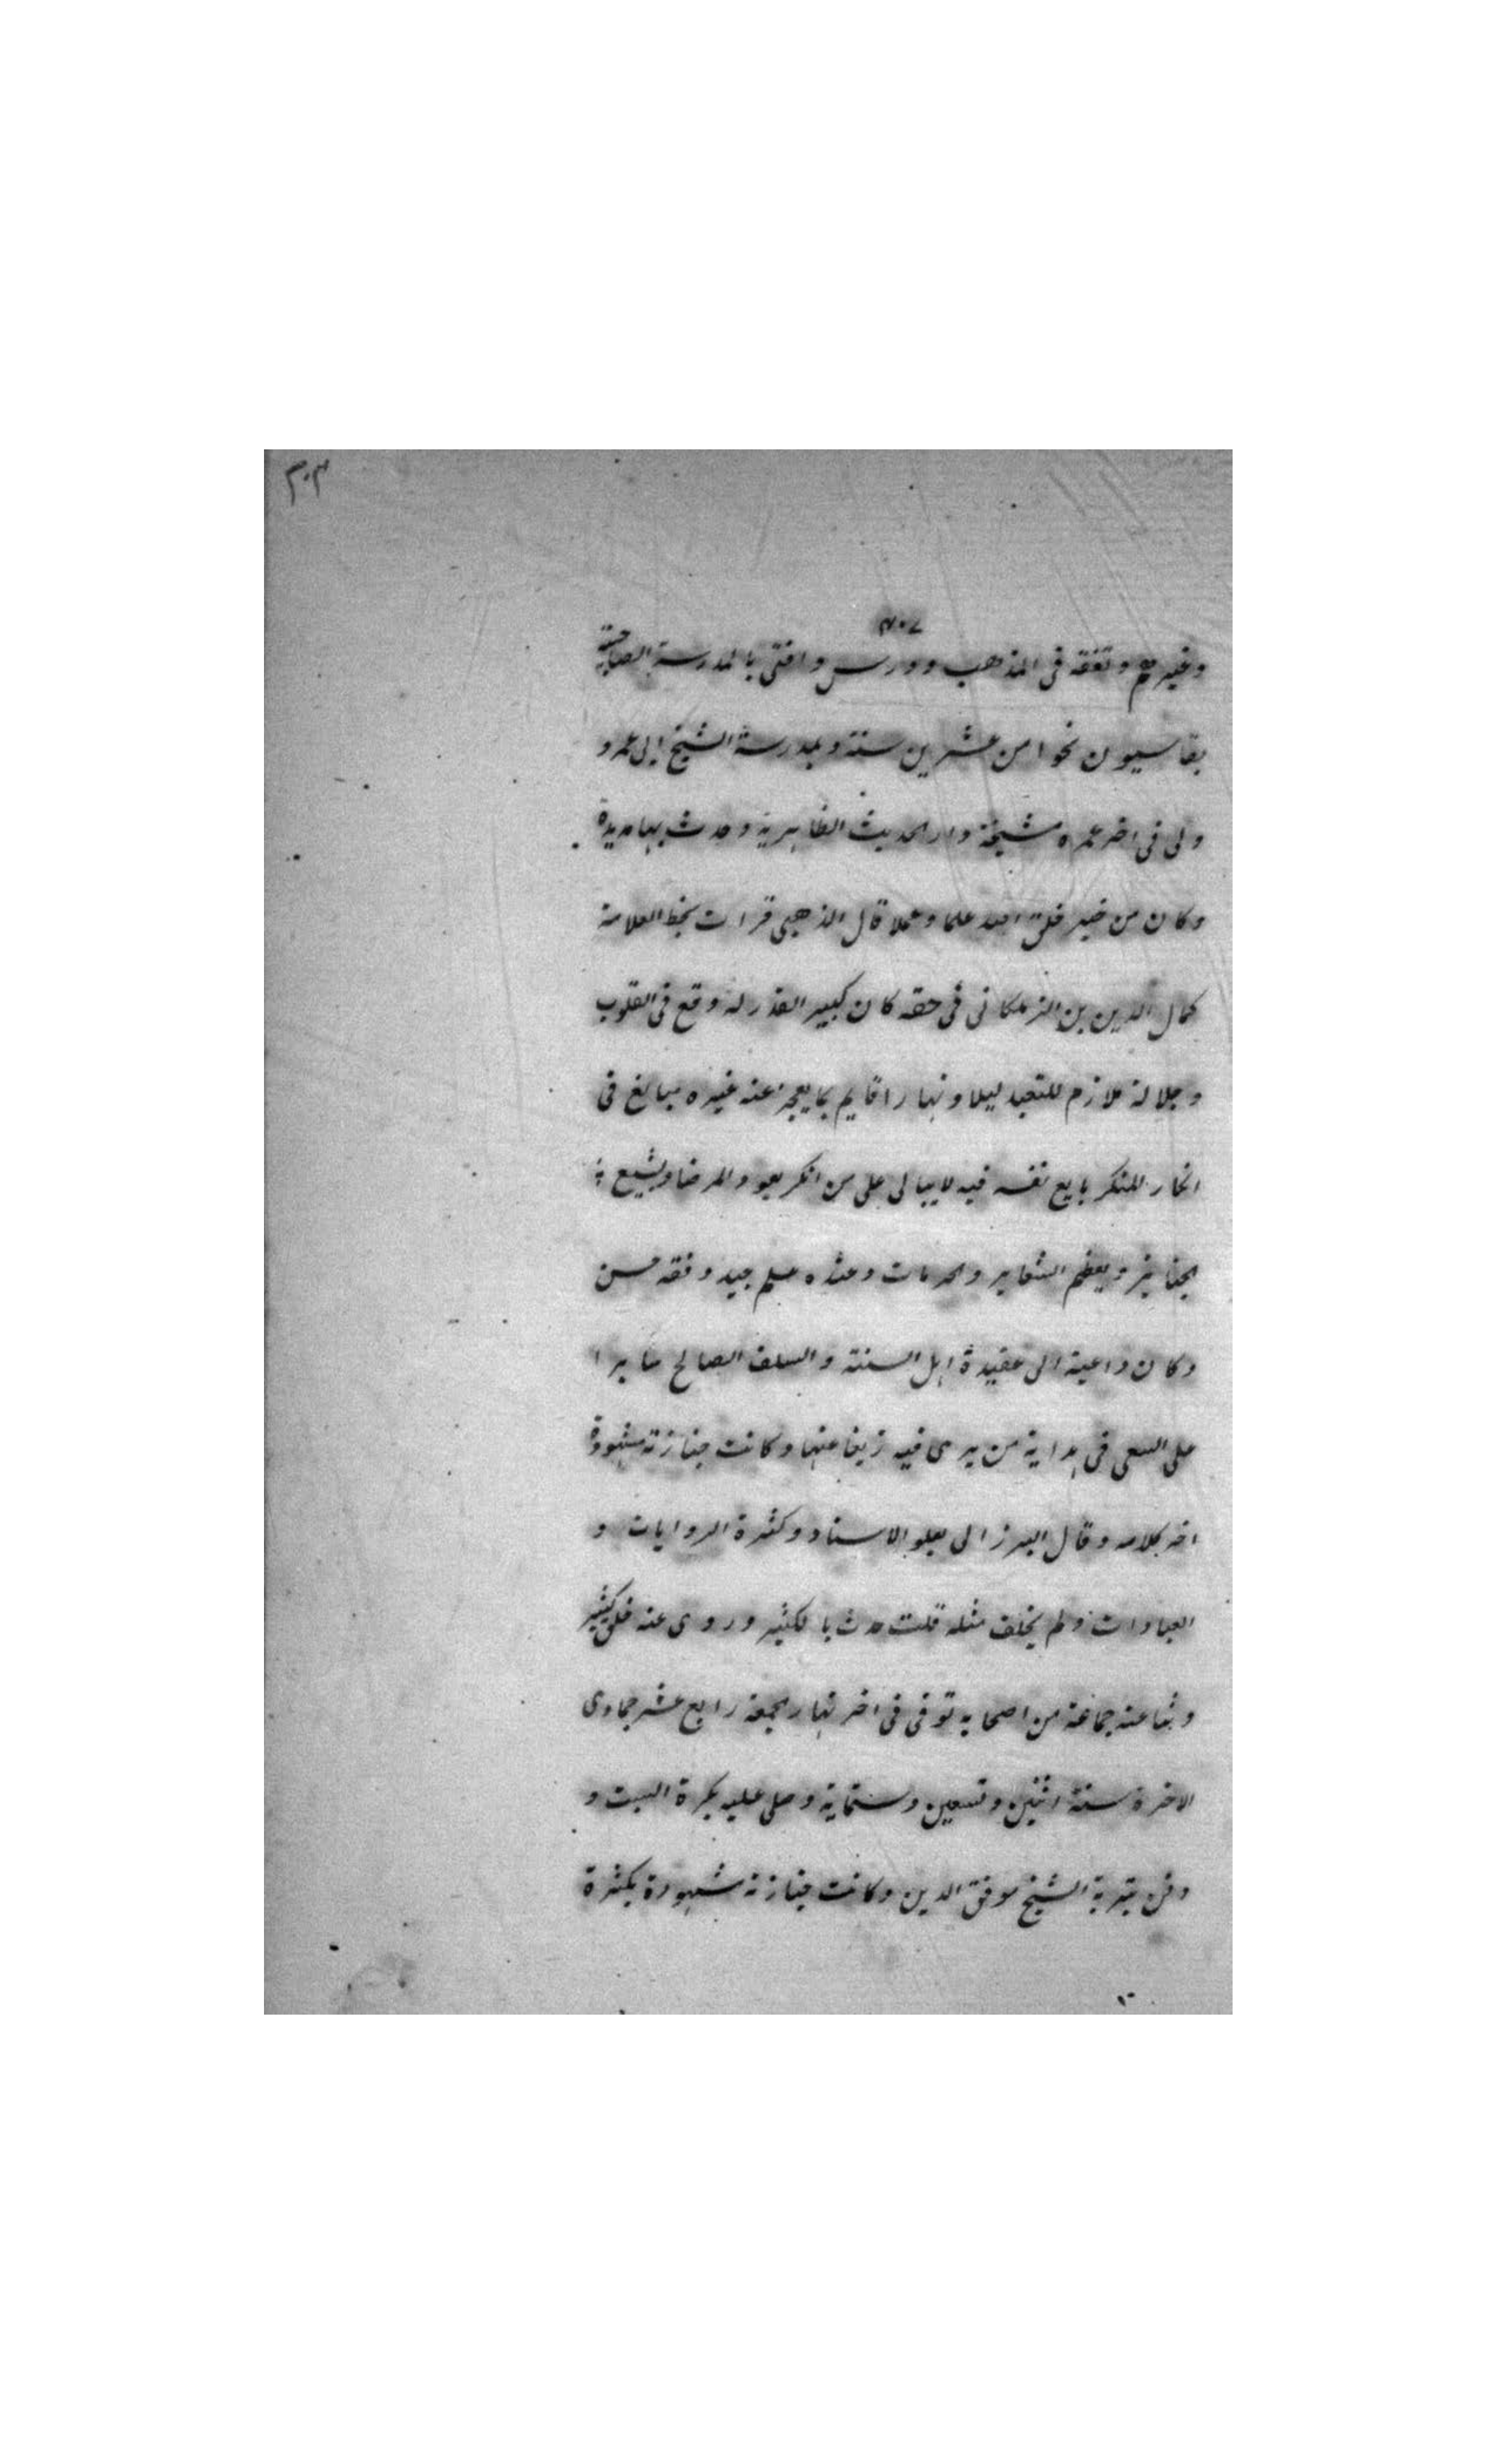 ٣٠٣
٧٠٣
وغيرهم وتفقه فى المذهب ودرس وافتى بالمدرسة الصاحبية
بقاسيون نحوا من عشرين سنة وبمدرسة الشيخ ابى عمر و
ولى فى اخر عمره مشيخة دار الحديث الظاهرية وحدث بها مديدة
وكان من خير خلق الله علما وعملا قال الذهبى قرات بخط العلامة
كمال الدين بن الزملكانى فى حقه كان كبير القدر له وقع فى القلوب
وجلالة ملازم للتعبد ليلا ونهارا قايم بما يعجز عنه غيره مبالغ فى
انكار المنكر بايع نفسه فيه لا يبالى على من انكر يعود المرضا ويشيع
الجنايز ويعظم الشعاير والحرمات وعنده علم جيد وفقه حسن
وكان داعية الى عقيدة اهل السنة والسلف الصالح مثابرا
على السعى فى هداية من يرى فيه زيغا عنها وكانت جنازته مشهودة
اخر كلامه وقال البرزالى بعلو الاسناد وكثرة الروايات و
العبادات ولم يخلف مثله قلت حدث بالكثير وروى عنه خلق كثير
وثنا عنه جماعة من اصحابه توفى فى اخر نهار الجمعة رابع عشر جمادى
الاخرة سنة اثنين وتسعين وستماية وصلى عليه بكرة السبت و
دفن بتربة الشيخ موفق الدين وكانت جنازته مشهودة بكثرة